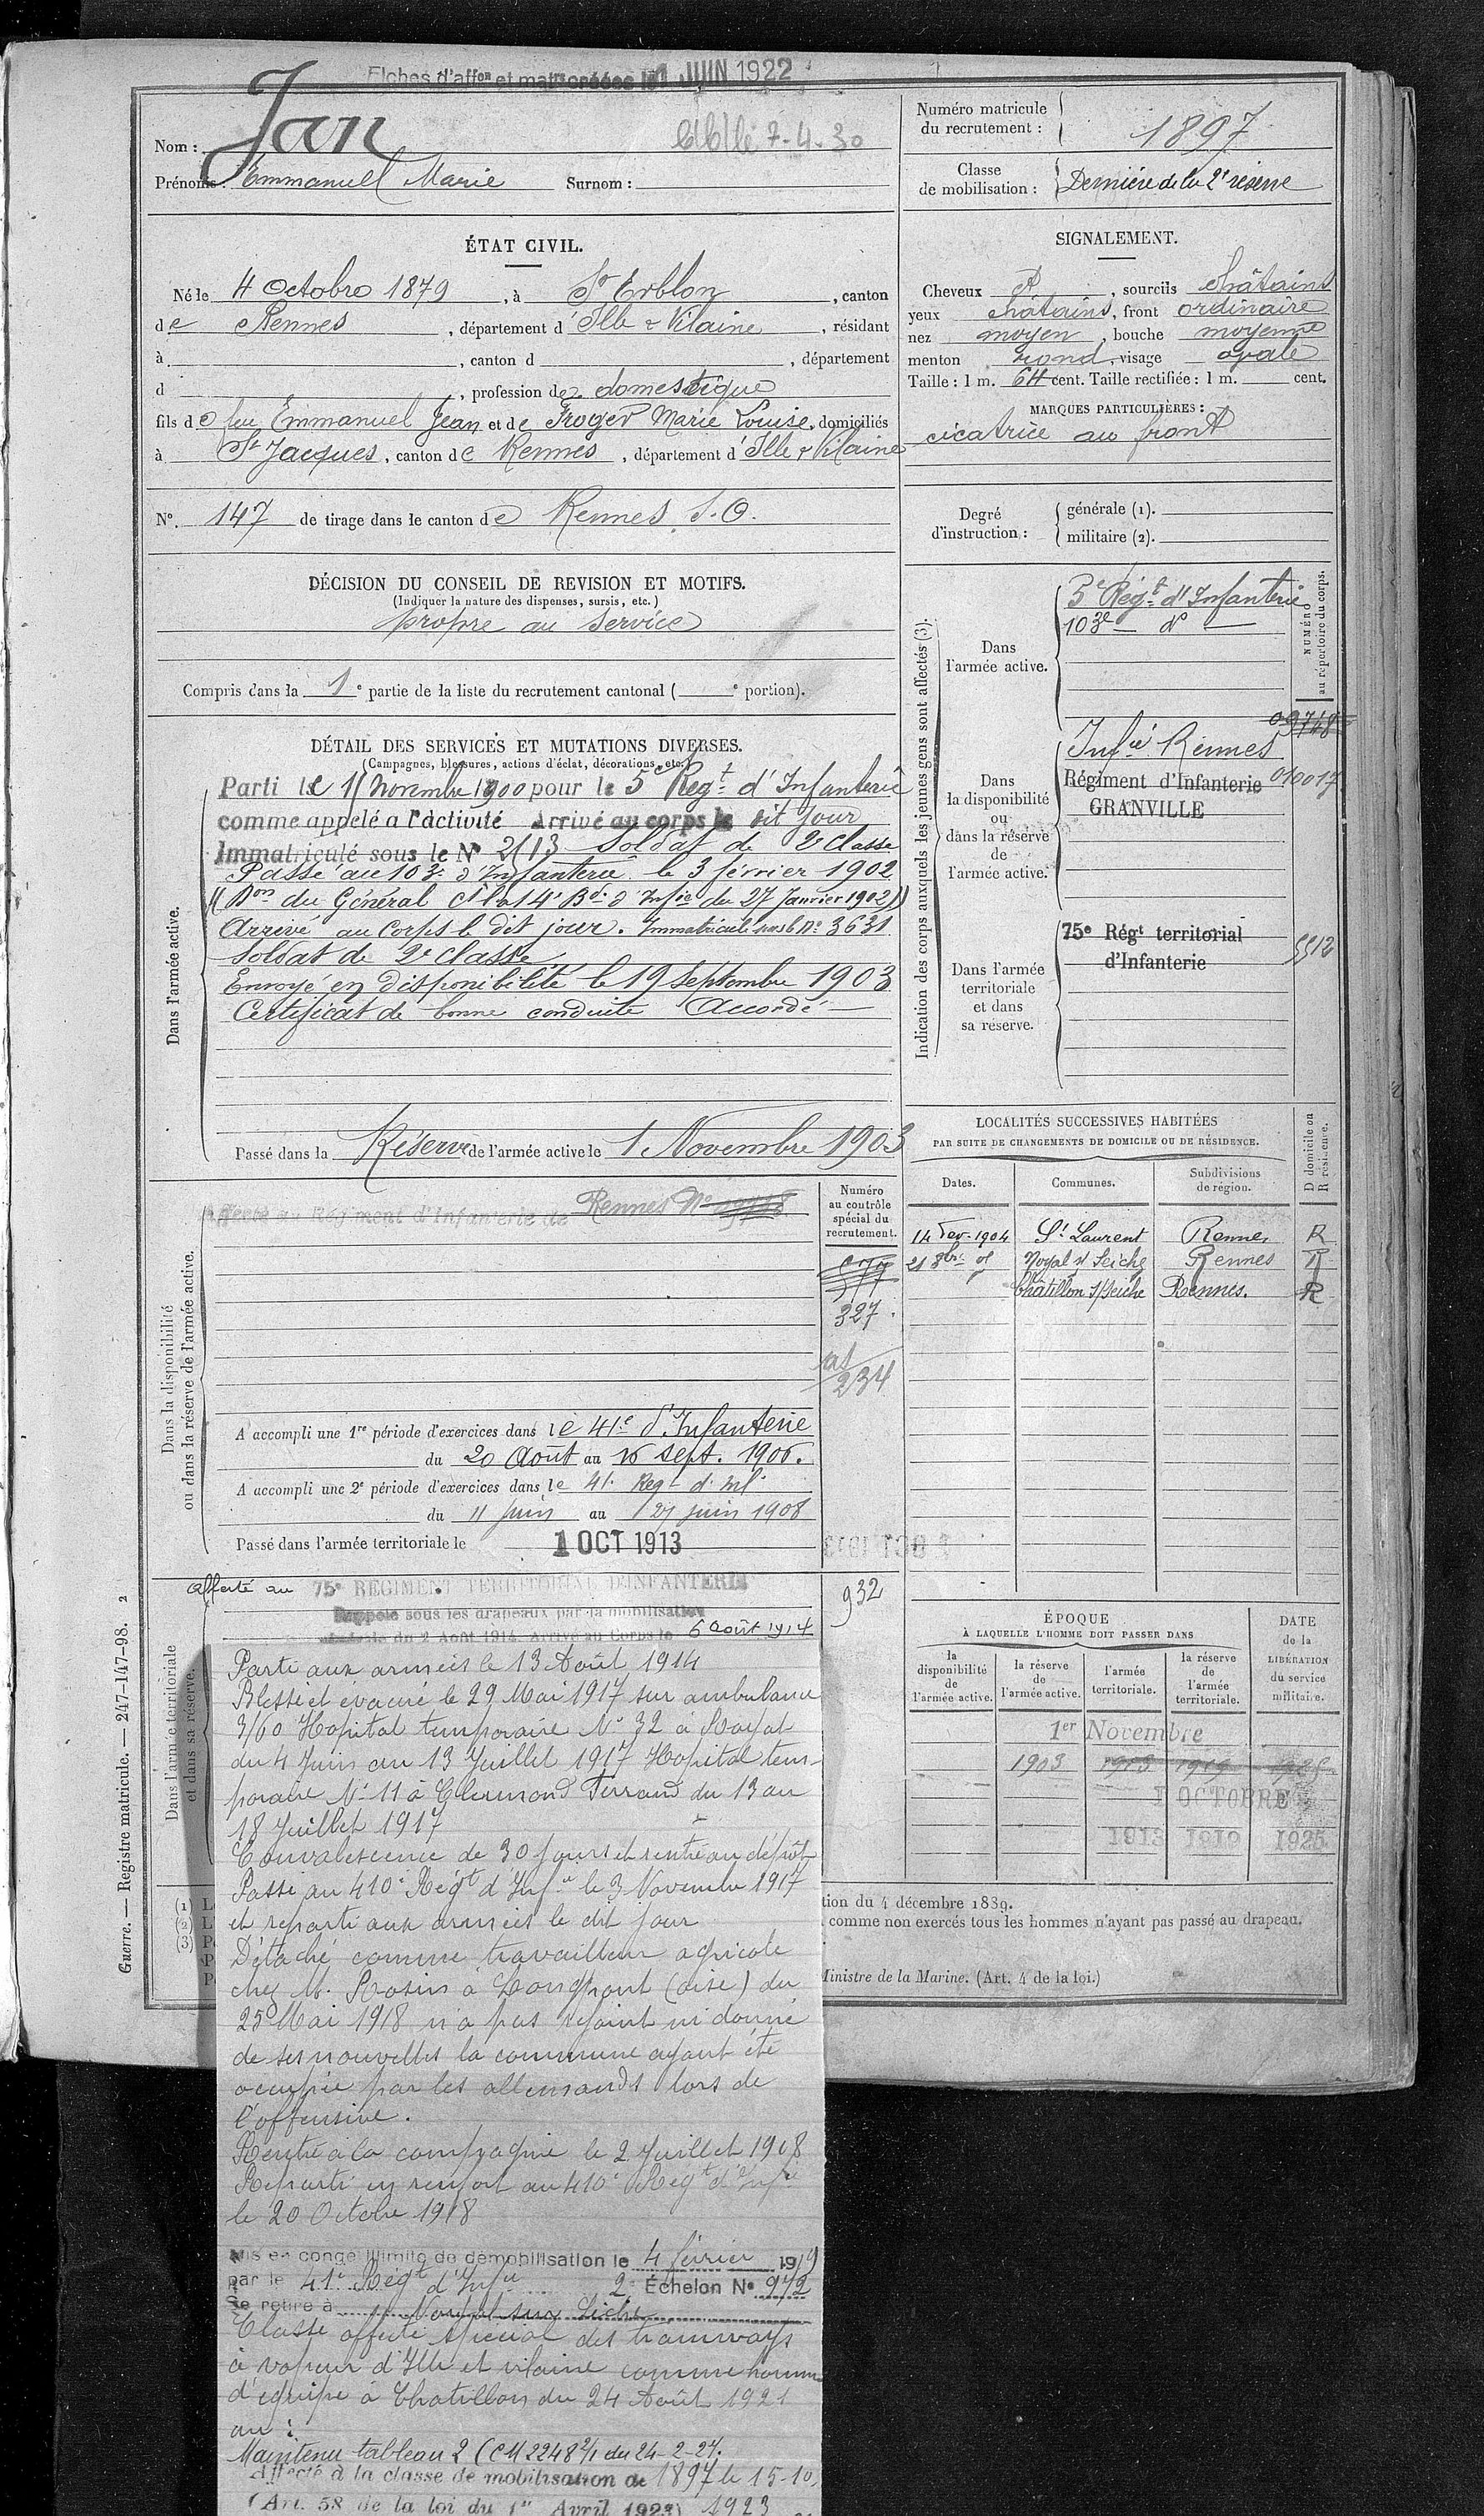 Fiches d'affon et matr créées le 1 JUIN 1922
Nom : Jan
lib le 7-4-30
Prénoms : Emmanuel Marie Surnom :
Numéro matricule du recrutement : 1897
Classe de mobilisation : Dernière de la 2e réserve
ÉTAT CIVIL.
Né le 4 Octobre 1879, à St Erblon, canton
de Rennes, département d'Ille & Vilaine, résidant
à , canton d , département
d , profession de domestique
fils de feu Emmanuel Jean et de Froger Marie Louise, domiciliés
à St Jacques, canton de Rennes, département d'Ille & Vilaine
No. 147 de tirage dans le canton de Rennes S.O.
SIGNALEMENT.
Cheveux et, sourcils châtains
yeux châtains, front ordinaire
nez moyen, bouche moyenne
menton rond, visage ovale
Taille : 1 m. 64 cent. Taille rectifiée : 1 m. cent.
MARQUES PARTICULIÈRES :
cicatrice au front
Degré d'instruction :
générale (1).
militaire (2).
DÉCISION DU CONSEIL DE REVISION ET MOTIFS.
(Indiquer la nature des dispenses, sursis, etc.)
propre au service
Compris dans la 1e partie de la liste du recrutement cantonal ( e portion).
DÉTAIL DES SERVICES ET MUTATIONS DIVERSES.
(Campagnes, blessures, actions d'éclat, décorations, etc.)
Dans l'armée active.
Parti le 15 novembre 1900 pour le 5e Regt d'Infanterie
comme appelé a l'activité Arrivé au corps le dit jour
Immatriculé sous le No 2113 Soldat de 2e classe
Passé au 103e d'Infanterie le 3 février 1902
(Don du Général Ct la 14e Bde d'Infie du 27 Janvier 1902)
Arrivé au Corps le dit jour. Immatriculé sous le no 3631
Soldat de 2e classe
Envoyé en disponibilité le 19 Septembre 1903
Certificat de bonne conduite Accordé
Passé dans la Réserve de l'armée active le 1 Novembre 1903
Indication des corps auxquels les jeunes gens sont affectés (3).
NUMÉRO au répertoire du corps.
Dans l'armée active.
5e Régt d'Infanterie
103e — do —
Dans la disponibilité ou dans la réserve de l'armée active.
09748
Infie Rennes
Régiment d'Infanterie 010017
GRANVILLE
Dans l'armée territoriale et dans sa réserve.
75e Régt territorial d'Infanterie 5512
LOCALITÉS SUCCESSIVES HABITÉES
PAR SUITE DE CHANGEMENTS DE DOMICILE OU DE RÉSIDENCE.
D domicile ou R résidence.
Dates. Communes. Subdivisions de région.
14 Fev. 1904 St Laurent Rennes R
21 8bre 05 Noyal s/ Seiche Rennes R
Châtillon s/Seiche Rennes. R
Dans la disponibilité ou dans la réserve de l'armée active.
Affecté au Régiment d'Infanterie de Rennes No 09748
Numéro au contrôle spécial du recrutement.
327
234
A accompli une 1re période d'exercices dans le 41e d'Infanterie
du 20 Août au 16 sept. 1906.
A accompli une 2e période d'exercices dans le 41e Regt d'Inf.
du 11 Juin au 27 juin 1908
Passé dans l'armée territoriale le 1 OCT 1913
Dans l'armée territoriale et dans sa réserve.
Affecté au 75e REGIMENT TERRITORIAL D'INFANTERIE 932
Rappelé sous les drapeaux par la mobilisation
générale du 2 Août 1914. Arrivé au Corps le 6 août 1914
Parti aux armées le 13 Août 1914
Blessé et évacué le 29 Mai 1917 sur ambulance
3/60 Hopital temporaire No 32 à Royat
du 4 Juin au 13 Juillet 1917 Hopital tem-
poraire No 11 à Clermond Ferrand du 13 au
18 Juillet 1917
Convalescence de 30 jours et rentré au dépôt
Passé au 410e Régt d'Infie le 3 Novembre 1917
et reparti aux armées le dit jour
Détaché comme travailleur agricole
chez M. Rosins à Longpont (oise) du
25 Mai 1918 n'a pas rejoint ni donné
de ses nouvelles la commune ayant été
occupée par les allemands lors de
l'offensive.
Rentré à la compagnie le 2 Juillet 1918
Reparti en renfort au 410e Regt d'Infie
le 20 Octobre 1918
Mis en congé illimité de démobilisation le 4 février 1919
par le 41e Regt d'Infie 2e Échelon No 972
Se retire à Noyal sur Seiche
Classé affecté spécial des tramways
à vapeur d'Ille et vilaine comme homme
d'équipe à Chatillon du 24 Août 1921
au :
Maintenu tableau 2 (CM 2248 2/1 du 24-2-27.
Affecté à la classe de mobilisation de 1897 le 15-10
(Art. 58 de la loi du 1er Avril 1923) 1923
ÉPOQUE
À LAQUELLE L'HOMME DOIT PASSER DANS
la disponibilité de l'armée active.
la réserve de l'armée active.
l'armée territoriale.
la réserve de l'armée territoriale.
DATE de la LIBÉRATION du service militaire.
1er Novembre
1903 1913 1919 1925
1 OCTOBRE
1913 1919 1925
tion du 4 décembre 1889.
comme non exercés tous les hommes n'ayant pas passé au drapeau.
Ministre de la Marine. (Art. 4 de la loi.)
Guerre. — Registre matricule. — 247-147-98. 2